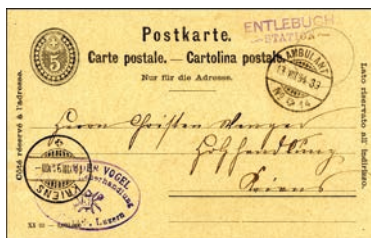 5
Postkarte.
Carte postale. — Cartolina postale.
Nur für die Adresse.
ENTLEBUCH
— STATION —
AMBULANT
13 VIII 94 - 33
No 14
Côté réservé à l'adresse.
Lato riservato all' indirizzo.
Herrn Christen Wenger
Holzhandlung
Kriens
KRIENS
VOGEL
Luzern